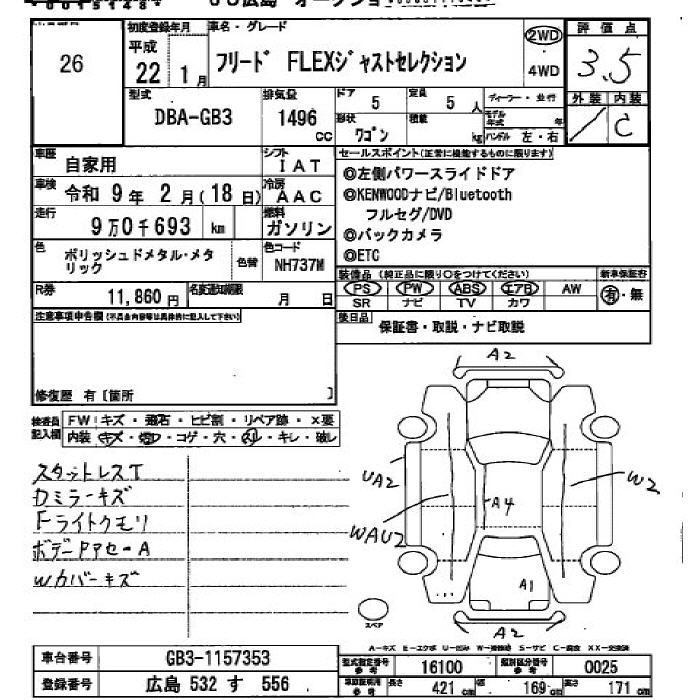 広島
初度登録年月
車名・グレード
2WD
評価点
26
平成
22 1月
フリード FLEXジャストセレクション
4WD
3.5
型式
排気量
ドア 5
定員 5人
ディーラー・並行
外装 内装
DBA-GB3
1496 cc
形状
ワゴン
積載 kg
モデル年式 年
ハンドル 左・右
/ C
車歴 自家用
シフト IAT
セールスポイント(正常に機能するものに限ります)
車検 令和 9年 2月(18日)
冷房 AAC
◎左側パワースライドドア
◎KENWOODナビ/Bluetooth
フルセグ/DVD
走行 9万0千693 km
燃料 ガソリン
◎バックカメラ
◎ETC
色 ポリッシュドメタル・メタリック
色替
色コード NH737M
装備品(純正品に限り○をつけてください)
新車保証書
R券 11,860円
名変通知期限 月 日
PS PW ABS エアB AW
有・無
SR ナビ TV カワ
注意事項申告欄(不具合内容等は具体的に記入して下さい)
後日品 保証書・取説・ナビ取説
修復歴 有〔箇所 〕
検査員記入欄
FW キズ・飛石・ヒビ割・リペア跡・×要
内装 キズ・汚レ・コゲ・穴・スレ・キレ・破レ
スタットレスT
Dミラーキズ
Fライトクモリ
ボデーPアセーA
Wカバーキズ
A2
UA2
W2
A4
WAU2
A1
A2
スペア
A-キズ E-エクボ U-凹み W-補修跡 S-サビ C-腐食 XX-交換済
車台番号 GB3-1157353
型式指定番号参考 16100
類別区分番号参考 0025
登録番号 広島 532 す 556
車車証明用参考 長さ 421 cm 幅 169 cm 高さ 171 cm